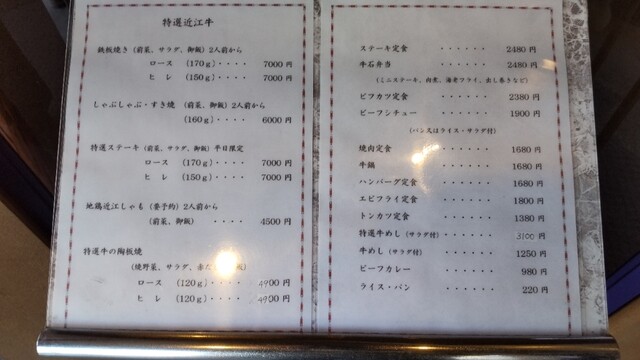 特選近江牛
鉄板焼き（前菜、サラダ、御飯）2人前から
ロース （170g）・・・・ 7000 円
ヒレ （150g）・・・・ 7000 円
しゃぶしゃぶ・すき焼 （前菜、御飯）2人前から
（160g）・・・・ 6000 円
特選ステーキ（前菜、サラダ、御飯）平日限定
ロース （170g）・・・・ 7000 円
ヒレ （150g）・・・・ 7000 円
地鶏近江しゃも（要予約）2人前から
（前菜、御飯） ・・・・ 4500 円
特選牛の陶板焼
（焼野菜、サラダ、赤だ 飯）
ロース （120g）・・・・ 4900 円
ヒレ （120g）・・・・ 4900 円
ステーキ定食 ・・・・・・ 2480 円
牛石弁当 ・・・・・・ 2480 円
（ミニステーキ、肉煮、海老フライ、出し巻きなど）
ビフカツ定食 ・・・・・・ 2380 円
ビーフシチュー ・・・・・・ 1900 円
（パン又はライス・サラダ付）
焼肉定食 ・・・・・・ 1680 円
牛鍋 ・・・・・・ 1680 円
ハンバーグ定食 ・・・・・・ 1680 円
エビフライ定食 ・・・・・・ 1800 円
トンカツ定食 ・・・・・・ 1380 円
特選牛めし（サラダ付）・・・・・・ 3100 円
牛めし（サラダ付）・・・・・・ 1250 円
ビーフカレー ・・・・・・ 980 円
ライス・パン ・・・・・・ 220 円